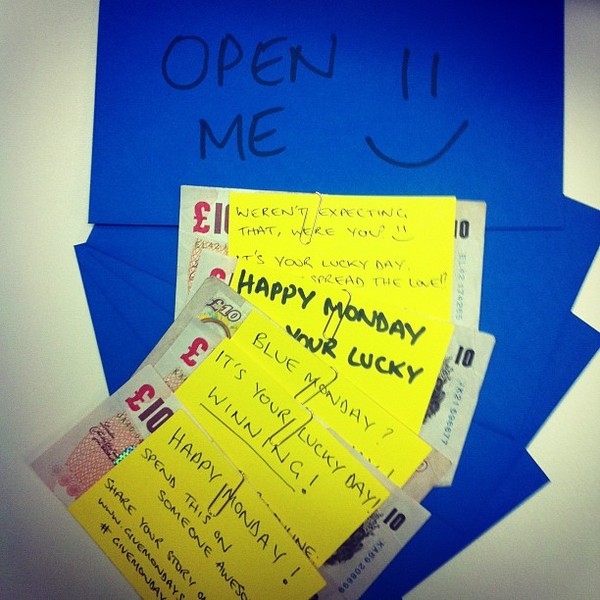 OPEN
ME
£10
WEREN'T EXPECTING
THAT, WERE YOU?
IT'S YOUR LUCKY DAY.
SPREAD THE LOVE!
10
HAPPY MONDAY
YOUR LUCKY
10
£10
BLUE MONDAY?
IT'S YOUR LUCKY DAY!
WINNING!
£10
HAPPY MONDAY!
SPEND THIS ON
SOMEONE AWESO
SHARE YOUR STORY O
WWW.GIVEMONDAYS
#GIVEMONDAY
10